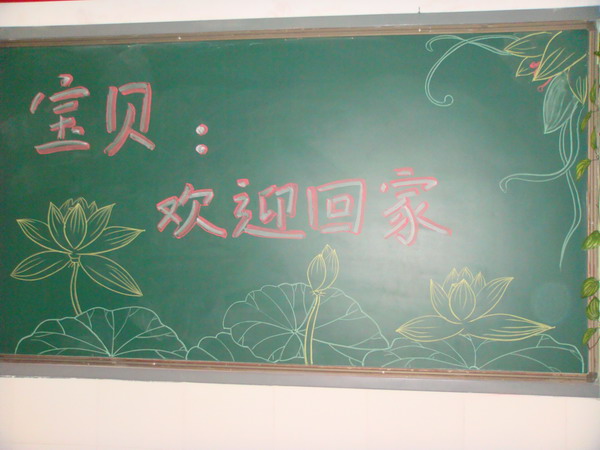 宝贝：
欢迎回家